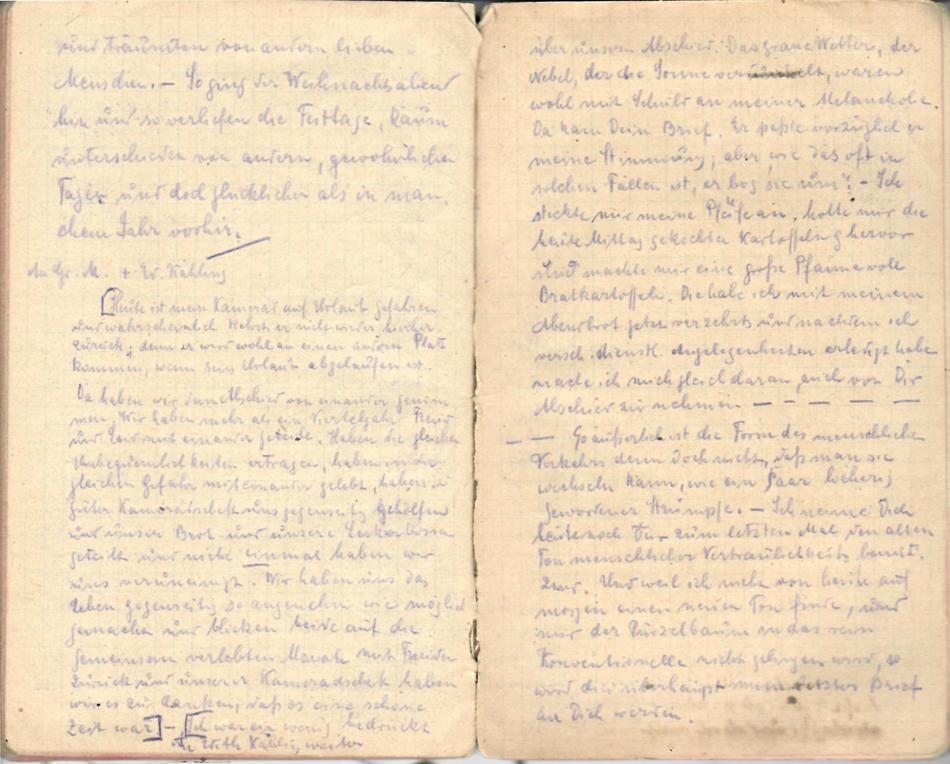 und träumten von andern lieben
Menschen. – So ging der Weihnachtsabend
hin und so verliefen die Festtage, kaum
unterschieden von andern, gewöhnlichen
Tagen und doch glücklicher als in man-
chem Jahr vorhir.
An Gr. M. + Ed. Kahling
[Heute ist mein Kamerad auf Urlaub gefahren
und wahrscheinlich kehrt er nicht wieder hierher
zurück; denn er wird wohl an einen andern Platz
kommen, wenn sein Urlaub abgelaufen ist.
Da haben wir dann Abschied von einander genom
men. Wir haben mehr als ein Vierteljahr Freud
und Leid mit einander geteilt. Haben die gleichen
Unbequemlichkeiten ertragen, haben in der
gleichen Gefahr miteinander gelebt, haben in
guter Kameradschaft uns gegenseitig geholfen
und unser Brot und unsere
geteilt und nicht einmal haben wir
uns veruneinigt. Wir haben uns das
Leben gegenseitig so angenehm wie möglich
gemacht und blicken beide auf die
gemeinsam verlebten Monate mit Freuden
zurück und unserer Kameradschaft haben
wir es zu danken, daß es eine schöne
Zeit war] – [Ich war ein wenig bedrückt
An Edith Kahling weiter
über unsern Abschied. Das graue Wetter, der
Nebel, der die Sonne, waren
wohl mit Schuld an meiner Melancholie.
Da kam Dein Brief. Er paßte vorzüglich in
meine Stimmung, aber wie das oft in
solchen Fällen ist, er bog sie um! – Ich
steckte mir meine Pfeife an, holte mir die
heute Mittag gekochten Kartoffeln hervor
und machte mir eine große Pfanne voll
Bratkartoffeln. Die habe ich mit meinem
Abendbrot jetzt verzehrt und nachdem ich
versch. dienstl. Angelegenheiten erledigt habe
mache ich mich gleich daran, auch von Dir
Abschied zu nehmen – – – – –
– – So äußerlich ist die Form des menschlichen
Verkehrs denn doch nicht, daß man sie
wechseln kann, wie ein Paar löcherig
gewordener Strümpfe. – Ich nenne Dich
heute noch Du – zum letzten Mal den alten
Ton menschlicher Vertraulichkeit
Und weil ich nicht von heute auf
morgen einen neuen Ton finde, und
mir der Purzelbaum in das rein
Konventionelle nicht gelingen wird, so
wird dies überhaupt mein letzter Brief
an Dich werden.